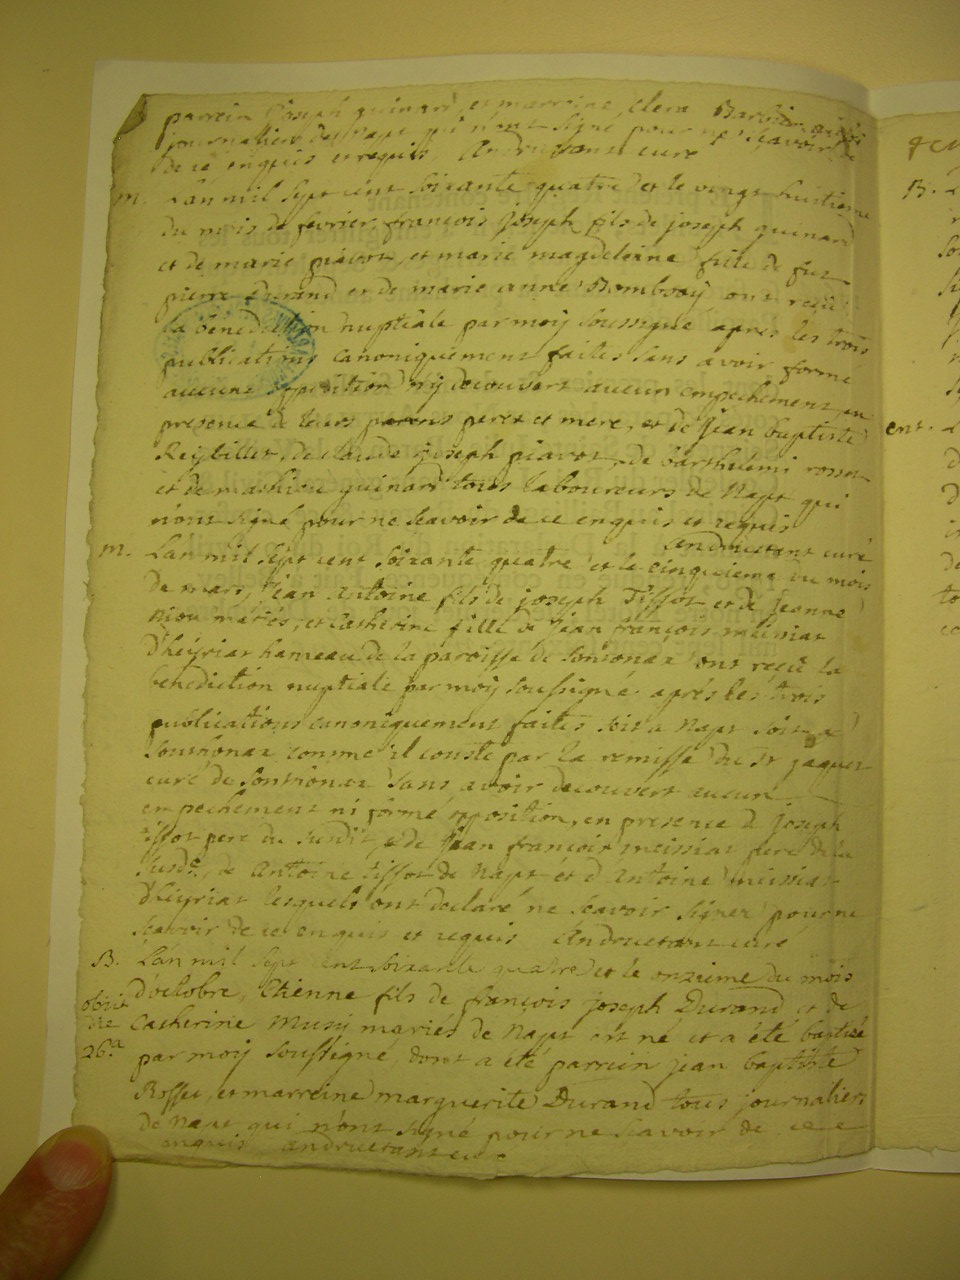 parrein Joseph guinard, et marreine Clera
journaliers de Napt qui n'ont signé pour ne scavoir de
de ce enquis et requis. Andruetant curé
m. L'an mil sept cent soixante quatre et le vingt huitieme
du mois de fevrier françois Joseph fils de joseph guinard
et de marie piavot, et marie magdeleine fille de fut
pierre Durand et de marie anne Bombooÿ ont reçû
la bénédiction nuptiale par moÿ soussigné après les trois
publications canoniquement faites sans avoir formé
aucune opposition nÿ découvert aucun empechement, en
presence de leurs peres et mere, et de Jean baptiste
Reÿbillet, de Claude joseph piavot, de barthelemi rosset
et de mathieu guinard tous laboureurs de Napt qui
n'ont signé pour ne scavoir de ce enquis et requis
Andruetant curé
m. L'an mil sept cent soixante quatre et le cinquieme du mois
de mars, Jean Antoine fils de joseph Tissot et de Jeanne
niou mariés, et Catherine fille de Jean françois meissiat
d'héÿriat hameau de la paroisse de Sontonax ont reçû la
benediction nuptiale par moÿ soussigné après les trois
publications canoniquement faites soit a Napt soit a
Sontonax comme il conste par la remisse du Sr jaquet
curé de Sontonax sans avoir decouvert aucun
empechement ni formé opposition, en presence de Joseph
Tissot pere du susdit, et de Jean françois meissiat pere de la
susde, de Antoine tissot de Napt et d'Antoine meissiat
d'héÿriat lesquels ont déclaré ne scavoir signer pour ne
scavoir de ce enquis et requis Andruetant curé
B. L'an mil sept cent soixante quatre et le onzieme du mois
d'octobre, Etienne fils de françois joseph Durand et de
obiit
die Catherine Musÿ mariés de Napt est né et a été baptisé
26.a par moÿ soussigné, dont a été parrein jean baptiste
Rosset, et marreine marguerite Durand tous journaliers
de Napt qui n'ont signé pour ne scavoir de ce
enquis Andruetant curé